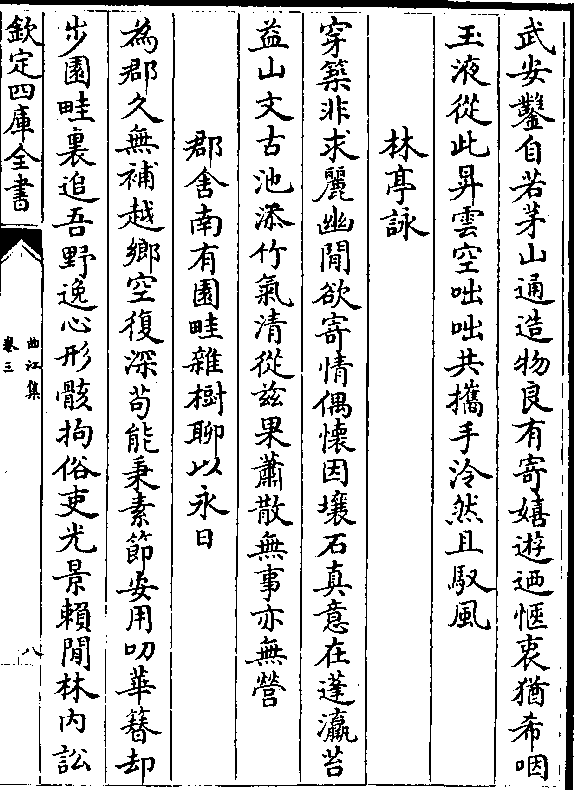 武安鑿自若茅山通造物良有寄嬉遊迺愜衷猶希咽
玉液從此昇雲空咄咄共攜手泠然且馭風
林亭詠
穿築非求麗幽閒欲寄情偶懷因壤石真意在蓬瀛苔
益山文古池添竹氣清從兹果蕭散無事亦無營
郡舍南有園畦雜樹聊以永日
為郡久無補越鄉空復深苟能秉素節安用叨華簪却
步園畦裏追吾野逸心形骸拘俗吏光景賴閒林内訟
欽定四庫全書
曲江集
卷三
八